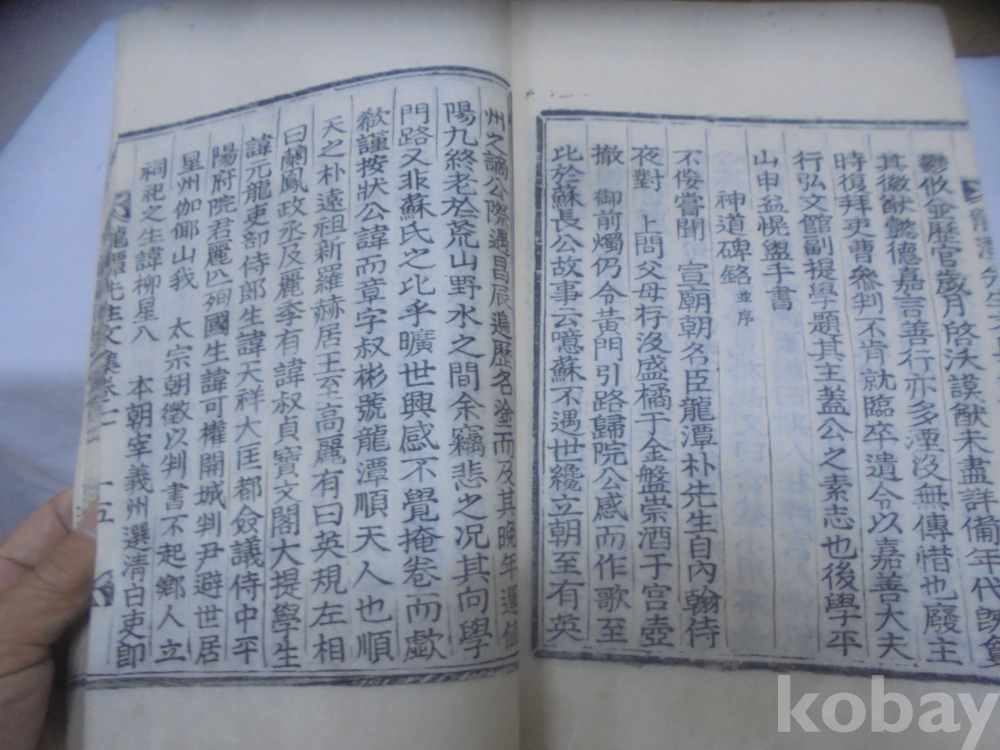 龍潭先生文
鬱攸僉歷官歲月啓沃謨猷未盡詳備年代旣
其徽猷懿德嘉言善行亦多湮沒無傳惜也廢主
時復拜吏曹參判不肯就臨卒遺令以嘉善大夫
行弘文館副提學題其主蓋公之素志也後學平
山申益愰盥手書
神道碑銘 並序
不佞嘗聞 宣朝朝名臣龍潭朴先生自內翰侍
夜對 上問父母存沒盛橘于金盤崇酒于宮壺
撤 御前燭仍令黃門引路歸院公感而作歌至
比於蘇長公故事云噫蘇不遇世纔立朝至有英
州之謫公際遇昌辰遍歷名塗而及其晚年運値
陽九終老於荒山野水之間余竊悲之況其向學
門路又非蘇氏之比乎曠世興感不覺掩卷而歔
欷謹按狀公諱而章字叔彬號龍潭順天人也順
天之朴遠祖新羅赫居王至高麗有曰英規左相
曰蘭鳳政丞及麗季有諱叔貞寶文閣大提學生
諱元龍吏部侍郎生諱天祥大匡都僉議侍中平
陽府院君麗亾殉國生諱可權開城判尹避世居
星州伽倻山我 太宗朝徵以判書不起鄉人立
祠祀之生諱柳星八 本朝宰義州選清白吏卽
龍潭先生文集卷 十五
kobay